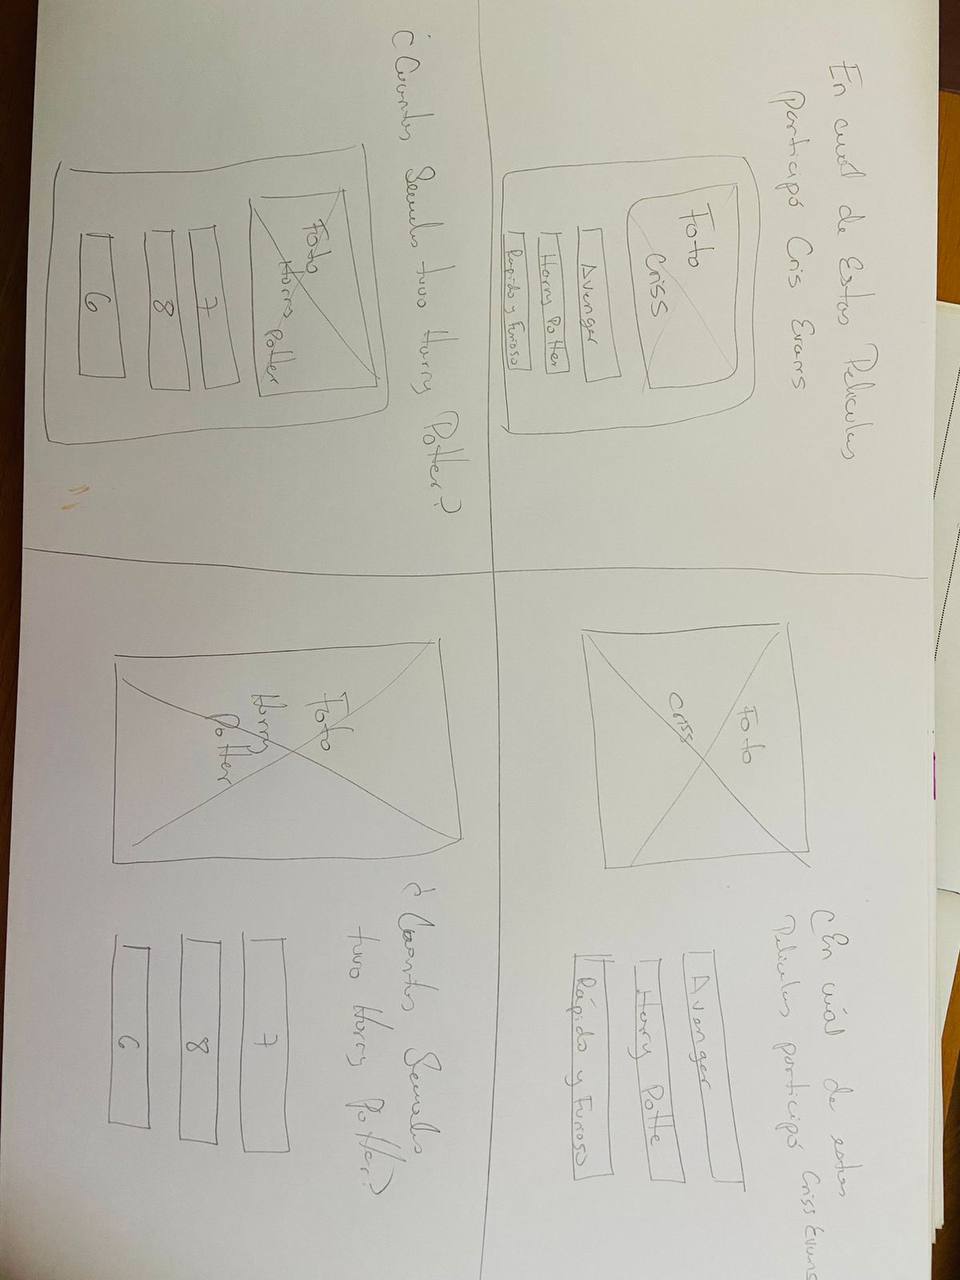 En cuál de Estas Peliculas
participó Cris Evans
Foto
Criss
Avenger
Harry Potter
Rápido y Furioso
¿En cuál de estas
Peliculas participó Criss Evans
Foto
Criss
Avenger
Harry Potte
Rápido y Furioso
¿Cuantas Secuelas tuvo Harry Potter?
Foto
Harry
Potter
7
8
6
¿Cuantas Secuelas
tuvo Harry Potter?
Foto
Harry
Potter
7
8
6